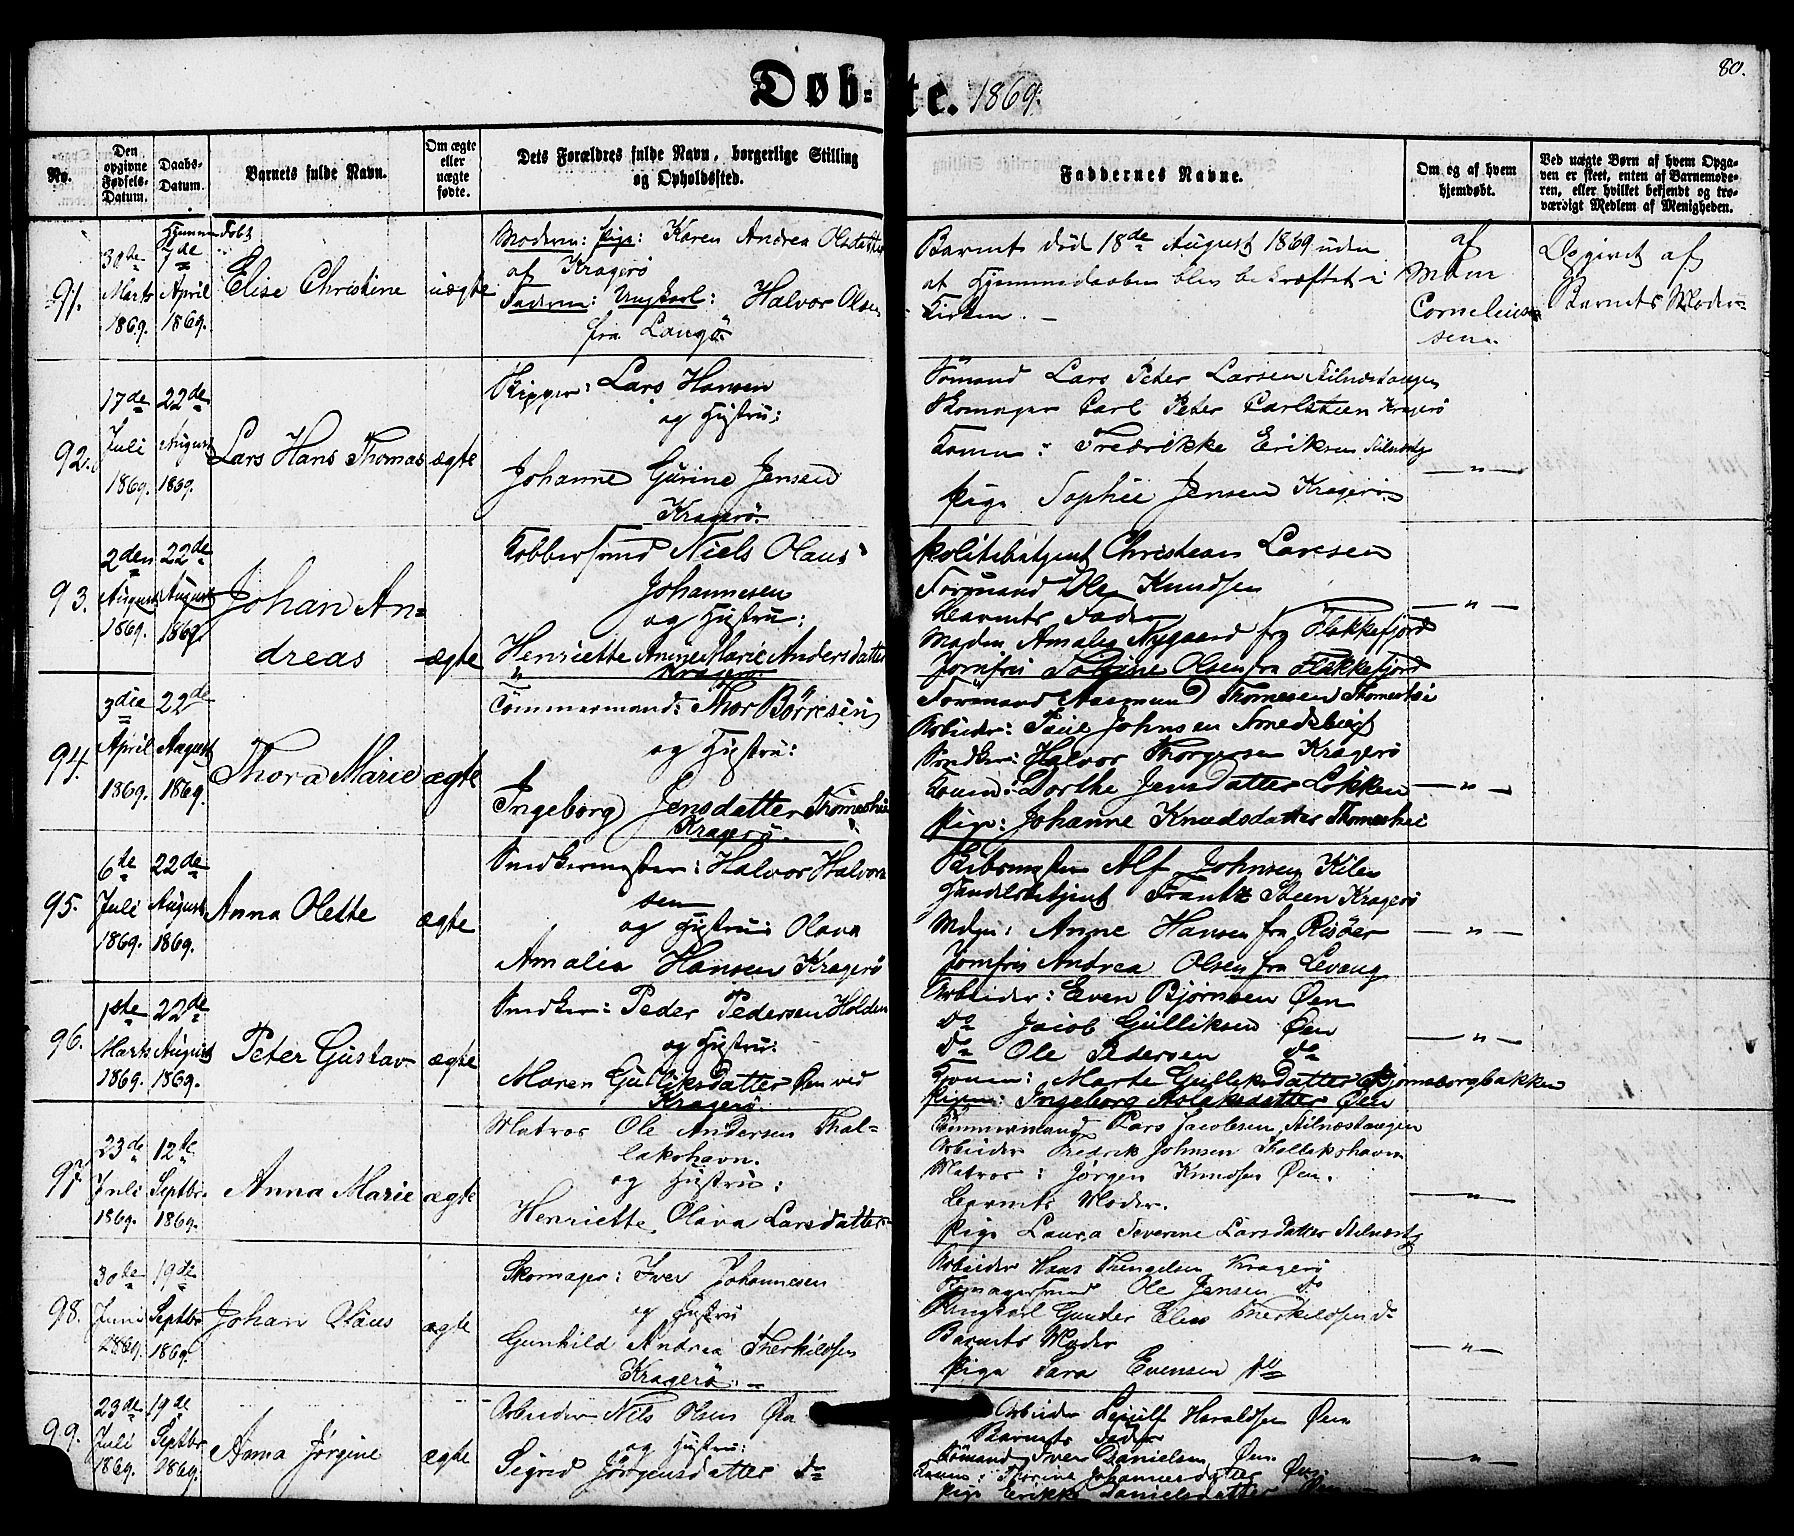 Døbte. 1869.
80.
No.
Den opgivne Fødsels-Datum.
Daabs-Datum.
Barnets fulde Navn.
Om ægte eller uægte fødte.
Dets Forældres fulde Navn, borgerlige Stilling og Opholdssted.
Faddernes Navne.
Om og af hvem hjemdøbt.
Ved uægte Børn af hvem Opga-
ven er skeet, enten af Barnemode-
ren, eller hvilket bekjendt og tro-
værdigt Medlem af Menigheden.
91.
30de Marts 1869.
Hjemmedøbt 7de April 1869.
Elise Christine
uægte
Moderen: Pige: Karen Andrea Olsdatter
af Kragerö
Faderen: Ungkarl: Halvor Olsen
fra Langö
Barnet död 18de August 1869 uden
at Hjemmedaaben blev bekræftet i
Kirken. —
af
Mdm
Corneliussen
Opgivet af
Barnets Moder
92.
17de Juli 1869.
22de August 1869.
Lars Hans Thomas
ægte
Skipper: Lars Hansen
og Hustru:
Johanne Gurine Jensen
Kragerö.
Sömand Lars Peter Larsen Stilnestangen
Skomager Carl Peter Carlsteen Kragerö
Konen: Fredrikke Eriksen Stilnestg
Pige Sophie Jensen Kragerö
— " —
93.
2den August 1869.
22de August 1869.
Johan An=
dreas
ægte
Kobbersmed Niels Olaus
Johannesen
og Hustru:
Henriette Anne Marie Andersdatter
Kragerö.
Politibetjent Christian Larsen
Formand Ole Knudsen
Barnets Fader
Madm Amalie Nygaard fra Flekkefjord
Jomfru Olsen fra Flekkefjord
— " —
94.
3die April 1869.
22de August 1869.
Thora Marie
ægte
Tömmermand: Thor Börresen
og Hustru:
Ingeborg Jensdatter Thomeshei
Kragerö.
Formand Aasmund Thomesen Thomeshei
Arbeider: Johnsen
Snedker: Halvor Thorgersen Kragerö
Konen: Dorthe Jensdatter Lökken
Pige: Johanne Knudsdatter Thomeshei
— " —
95.
6de Juli 1869.
22de August 1869.
Anna Olette
ægte
Snedkermester: Halvor Halvor
sen
og Hustru: Olava
Amalia Hansen Kragerö
Alf Johnsen Kilen
Handelsbetjent Frantz Steen Kragerö
Mdm: Anne Hansen fra Risöer
Jomfru Andrea Olsen fra Levang
— " —
96.
1ste Marts 1869.
22de August 1869.
Peter Gustav
ægte
Snedker: Peder Pedersen Holden
og Hustru:
Maren Gulliksdatter Öen ved
Kragerö.
Arbeider: Even Björnsen Öen
do Jacob Gulliksen Öen
do Ole Pedersen do
Konen: Marte Gulliksdatter Bjornsborgbakken
Pigen: Ingeborg Aslaksdatter Öen
— " —
97.
23de Juli 1869.
12te Septbr. 1869.
Anna Marie
ægte
Matros Ole Andersen Thal=
lakshavn.
og Hustru:
Henriette Olava Larsdatter
Tömmermand Lars Jacobsen, Stilnestangen
Arbeider Fredrik Johnsen Thollakshavn
Matros: Jörgen Knudsen Öen.
Barnets Moder.
Pige Laura Severine Larsdatter Stilnestg
— " —
98.
30te Juni 1869.
19de Septbr. 1869.
Johan Olaus
ægte
Skomager: Iver Johannesen
og Hustru
Gunhild Andrea Therkildsen
Kragerö. —
Arbeider Hans Thengelsen Kragerö
Ole Jensen do
Ungkarl Gunder Elias Therkildsen do
Barnets Moder
Pige Sara Evensen do
— " —
99.
23de Juli 1869.
19de Septbr. 1869.
Anna Jörgine
ægte
Arbeider Nils Olsen Öen
og Hustru:
Sigrid Jörgensdatter do
Arbeider Leiulf Haraldsen Öen
Barnets Fader
Sömand Iver Danielsen Öen
Konen: Thorine Johannesdatter Öen.
Pige Erikke Danielsdatter Öen
— " —